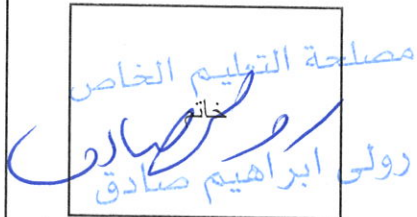 مصلحة التعليم الخاص
خاتم
رولى ابراهيم صادق